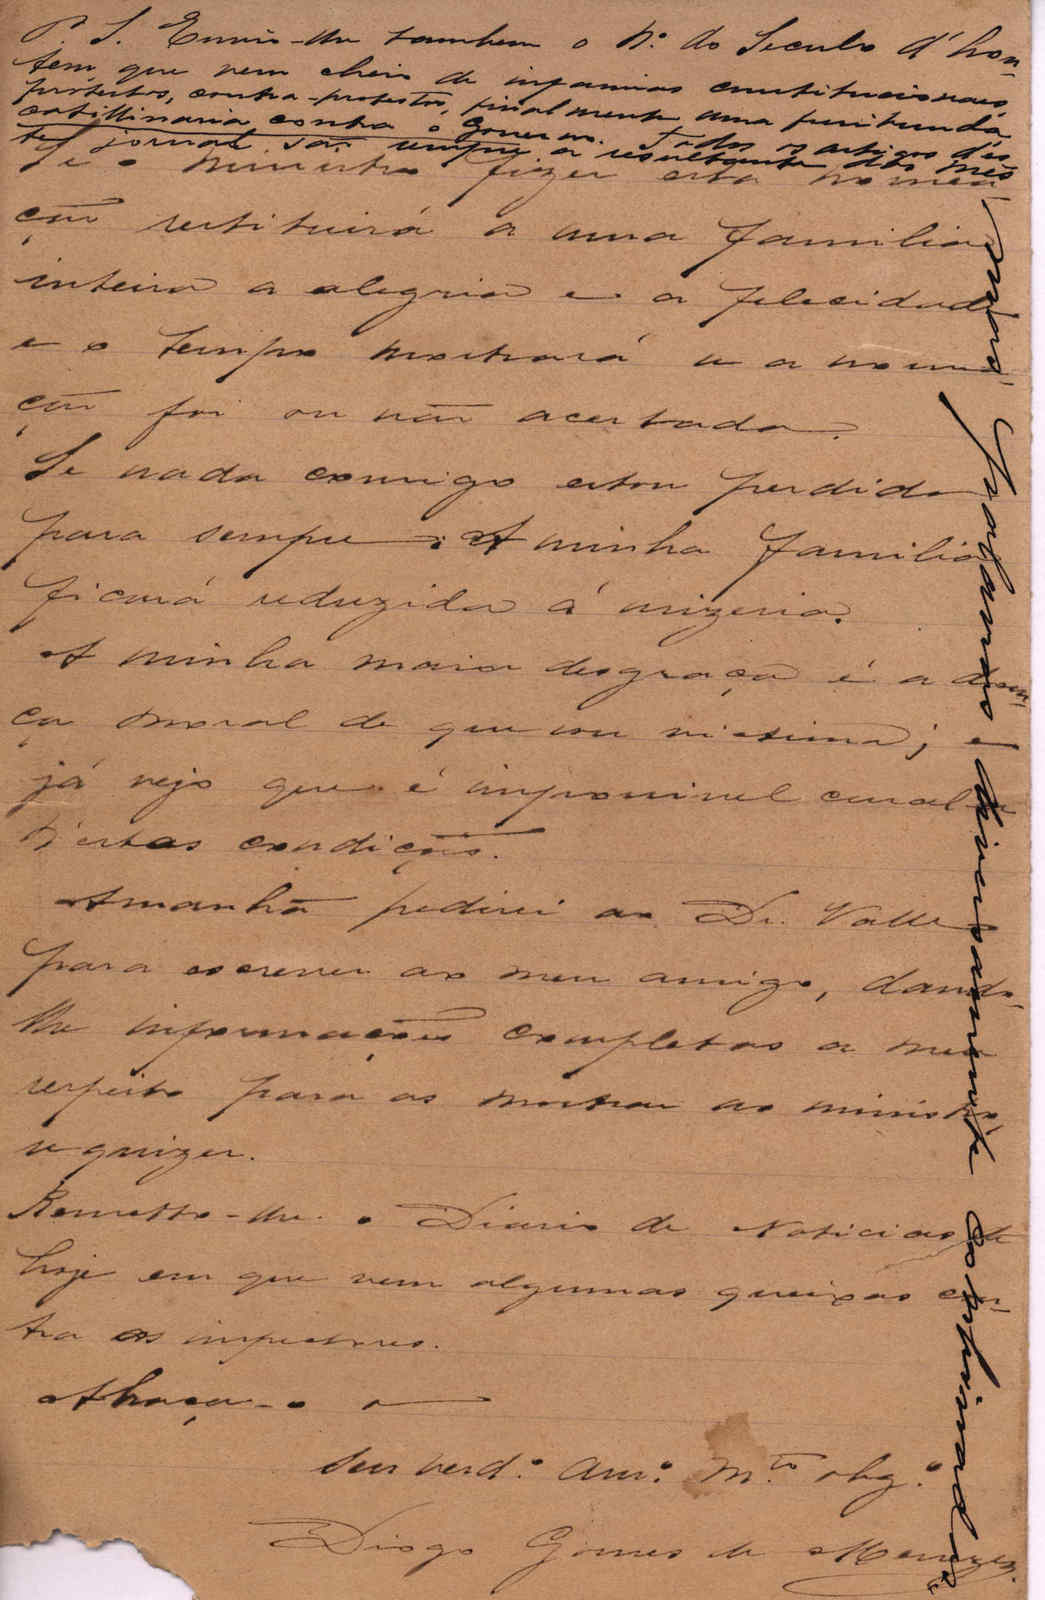 P. S. Envio-lhe tambem o Nº. do Seculo d'hon-
tem que vem cheio de infamias constitucionaes
protestos, contra-protestos, finalmente uma furibunda
catillinaria contra o Governo. Todos os artigos d'es-
te jornal são sempre a resultante das más
Se o ministro fizer esta nomea-
ção restituirá a uma familia
inteira a alegria e a felecidade
e o tempo mostrará se a nomea-
ção foi ou não acertada.
Se nada consigo estou perdido
para sempre. A minha familia
ficará reduzida á mizeria.
A minha maior desgraça é a doen-
ça moral de que sou victima; e
já vejo que é impossivel cural-a
n'estas condições.
Amanhã pedirei ao Dr. Valle
para escrever ao meu amigo, dando-
lhe informações completas a meu
respeito para as mostrar ao ministro
se quizer.
Remetto-lhe o Diario de Noticias de
hoje em que vem algumas queixas con-
tra os inspectores.
Abraça-o o
Seu verdº. amº. Mto. obgº.
Diogo Gomes de Menezes.